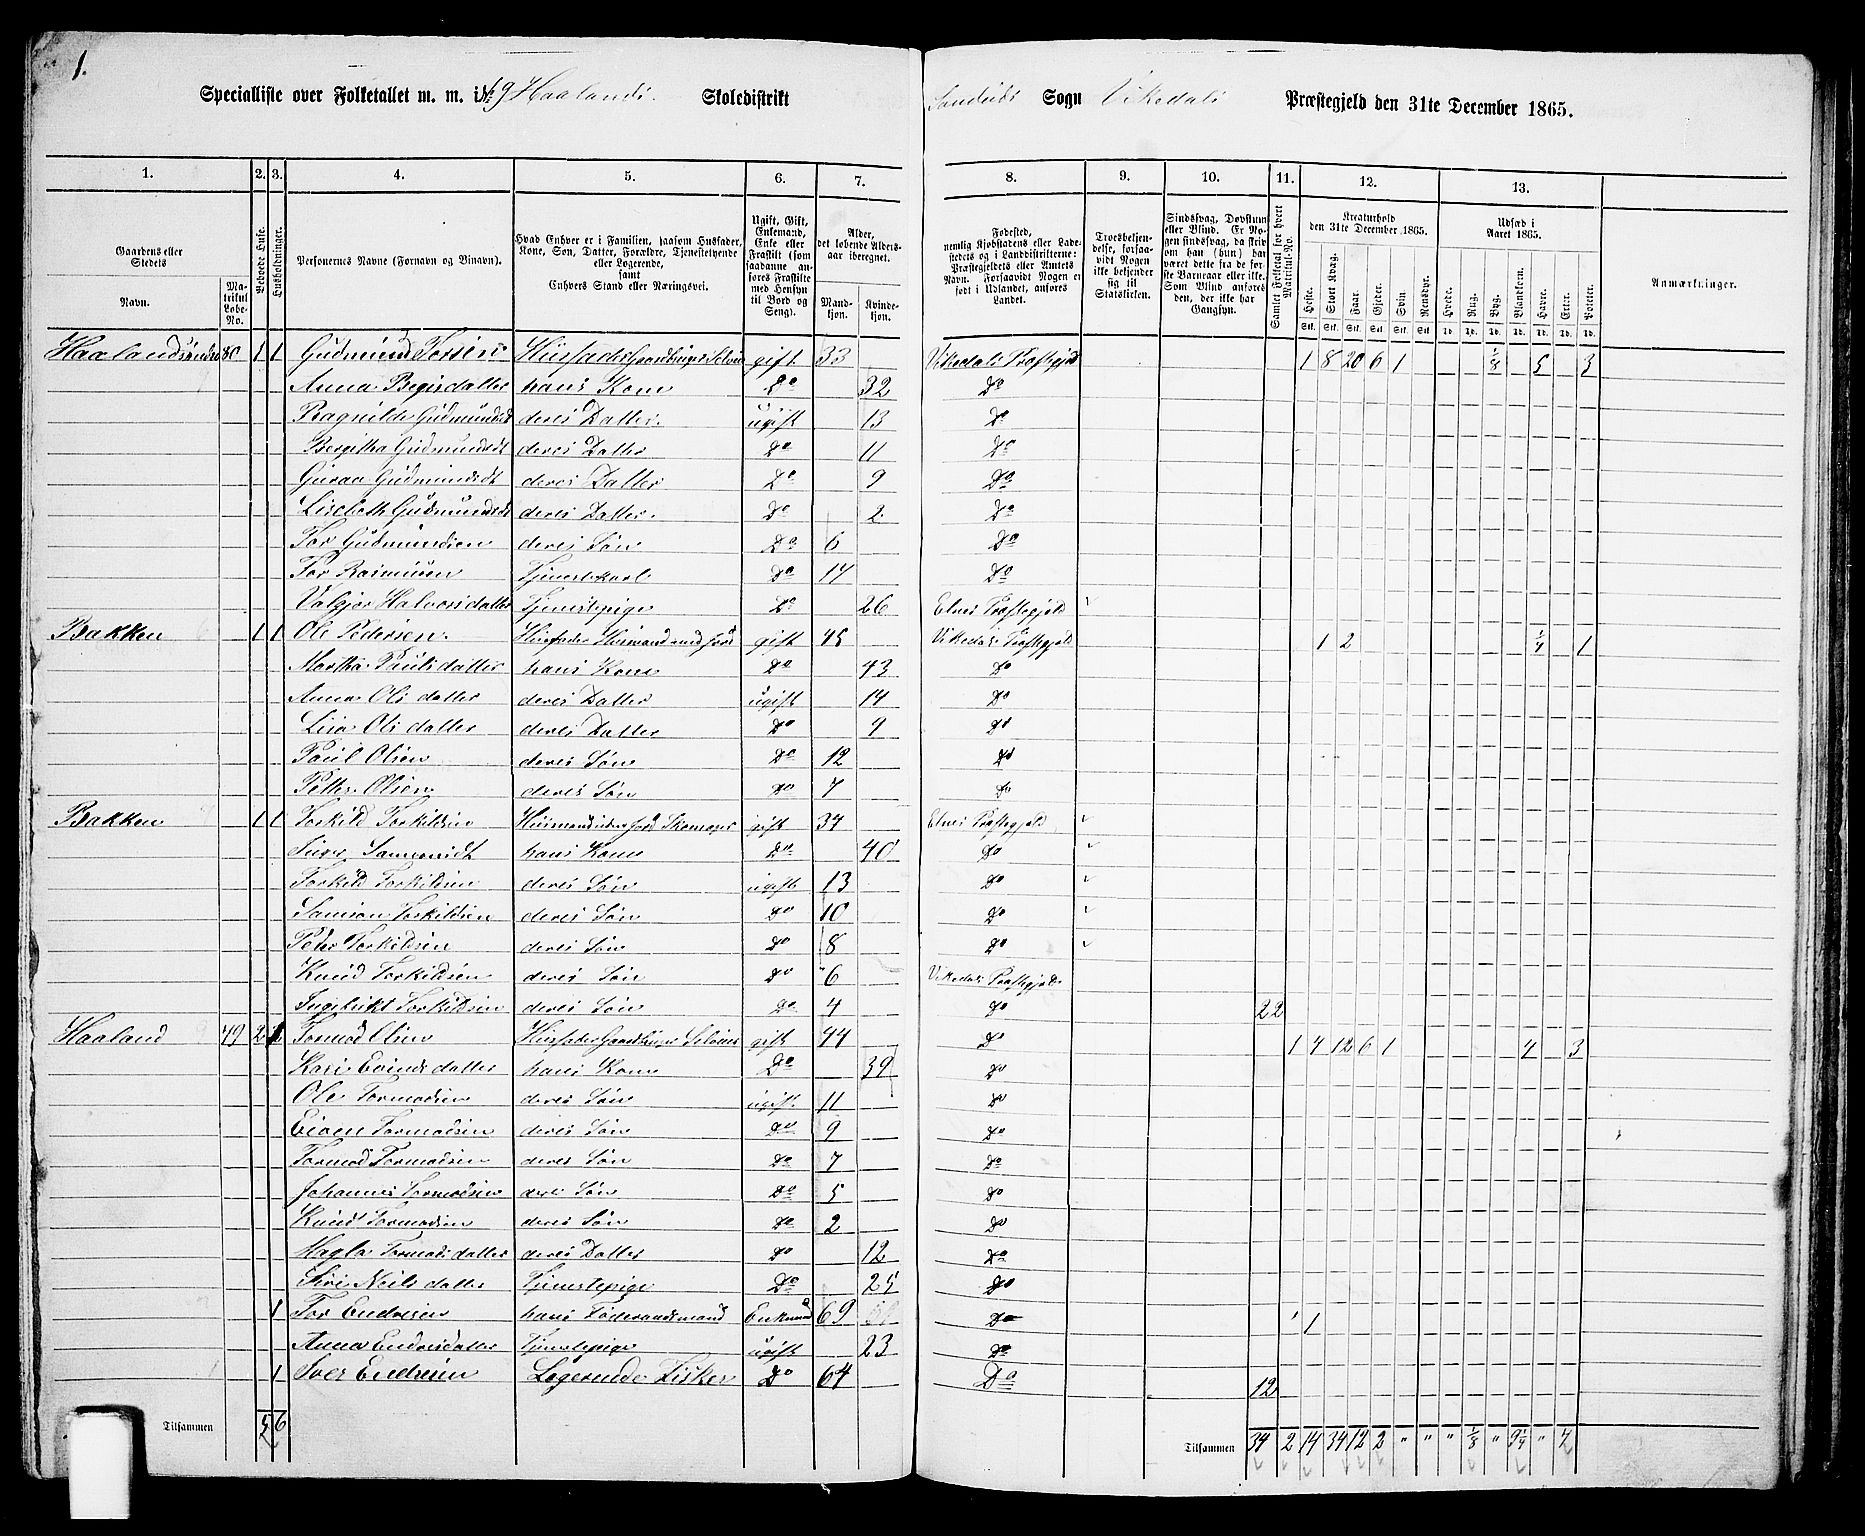 1.
Specialliste over Folketallet m. m. i No 9 Haalands Skoledistrikt Sandeids Sogn Vikedals Præstegjeld den 31te December 1865.
1. 2. 3. 4. 5. 6. 7. 8. 9. 10. 11. 12. 13.
Gaardens eller Stedets Navn. Matrikul Løbe-No. Beboede Huse. Husholdninger. Personernes Navne (Fornavn og Binavn). Hvad Enhver er i Familien, saasom Husfader, Kone, Søn, Datter, Forældre, Tjenestetyende eller Logerende, samt Enhvers Stand eller Næringsvei. Ugift, Gift, Enkemand, Enke eller Fraskilt (som saadanne anføres Fraskilte med Hensyn til Bord og Seng). Alder, det løbende Aldersaar iberegnet. Mandkjøn. Kvindekjøn. Fødested, nemlig Kjøbstadens eller Ladestedets og i Landdistrikterne: Præstegjeldets eller Amtets Navn. Forsaavidt Nogen er født i Udlandet, anføres Landet. Troesbekjendelse, forsaavidt Nogen ikke bekjender sig til Statskirken. Sindssvag, Døvstum eller Blind. Er Nogen sindssvag, da skrives om han (hun) har været dette fra de første Barnaar eller ikke. Som Blind anføres den, der ikke har Gangsyn. Samlet Folketal for hvert Matrikul-No. Kreaturhold den 31te December 1865. Heste. Stort Kvæg. Faar. Gjeder. Svin. Rensdyr. Udsæd i Aaret 1865. Hvede. Rug. Byg. Blandkorn. Havre. Erter. Poteter. Anmærkninger.
80 1 1 Gudmund Torsen Husfader Gaardbruger Selveier gift 33 Vikedals Præstegjeld 1 8 20 6 1 1/8 5 3
Anna hans Kone Do 32 Do
Ragnilde Gudmundsdt deres Datter. ugift 13 Do
Bergitha Gudmundsdt deres Datter Do 11 Do
Guraa Gudmundsdt deres Datter Do 9 Do
Lisebeth Gudmundsdt deres Datter. Do 2 Do
Tor Gudmundsen deres Søn Do 6 Do
Tor Rasmusen Tjenestekarl Do 14 Do
Halvorsdatter Tjenestepige Do 26 Præstegjeld
Bakken 1 1 Ole Pedersen. Husfader Husmand med Jord gift 45 Vikedals Præstegjeld 1 2 1/4 1
Martha Paulsdatter hans Kone Do 43 Do
Anna Olsdatter deres Datter ugift 14 Do
Lisa Olsdatter deres Datter Do 9 Do
Paul Olsen deres Søn Do 12 Do
Petter Olsen deres Søn Do 7 Do
Bakken 1 1 Torkild Torkildsen Husmand uden Jord Skomager gift 34 Præstegjeld
hans Kone Do 40 Do
Torkild Torkildsen deres Søn ugift 13 Do
Samson Torkildsen deres Søn Do 10 Do
Peder Torkildsen deres Søn Do 8 Do
Knud Torkildsen deres Søn Do 6 Vikedals Præstegjeld
Ingebrikt Torkildsen deres Søn Do 4 Do 22
Haaland 79 2 1 Tormod Olsen Husfader Gaardbruger Selveier gift 44 Do 1 4 12 6 1 4 3
Kari Evindsdatter hans Kone Do 39 Do
Ole Tormodsen deres Søn ugift 11 Do
Eiven Tormodsen deres Søn Do 9 Do
Tormod Tormodsen deres Søn Do 7 Do
Johannes Tormodsen deres Søn Do 5 Do
Knud Tormodsen deres Søn Do 2 Do
Magla Tormodsdatter deres Datter Do 12 Do
Siri Neilsdatter Tjenestepige Do 25 Do
1 Tor Endresen hans Føderaadsmand Enkmd 69 Do 1
Anna Endresdatter Tjenestepige ugift 23 Do
1 Endresen Logerende Fisker Do 64 Do 12
Tilsammen 5 6 Tilsammen 34 2 14 34 12 2 " " " 1/8 " 9 1/4 " 7